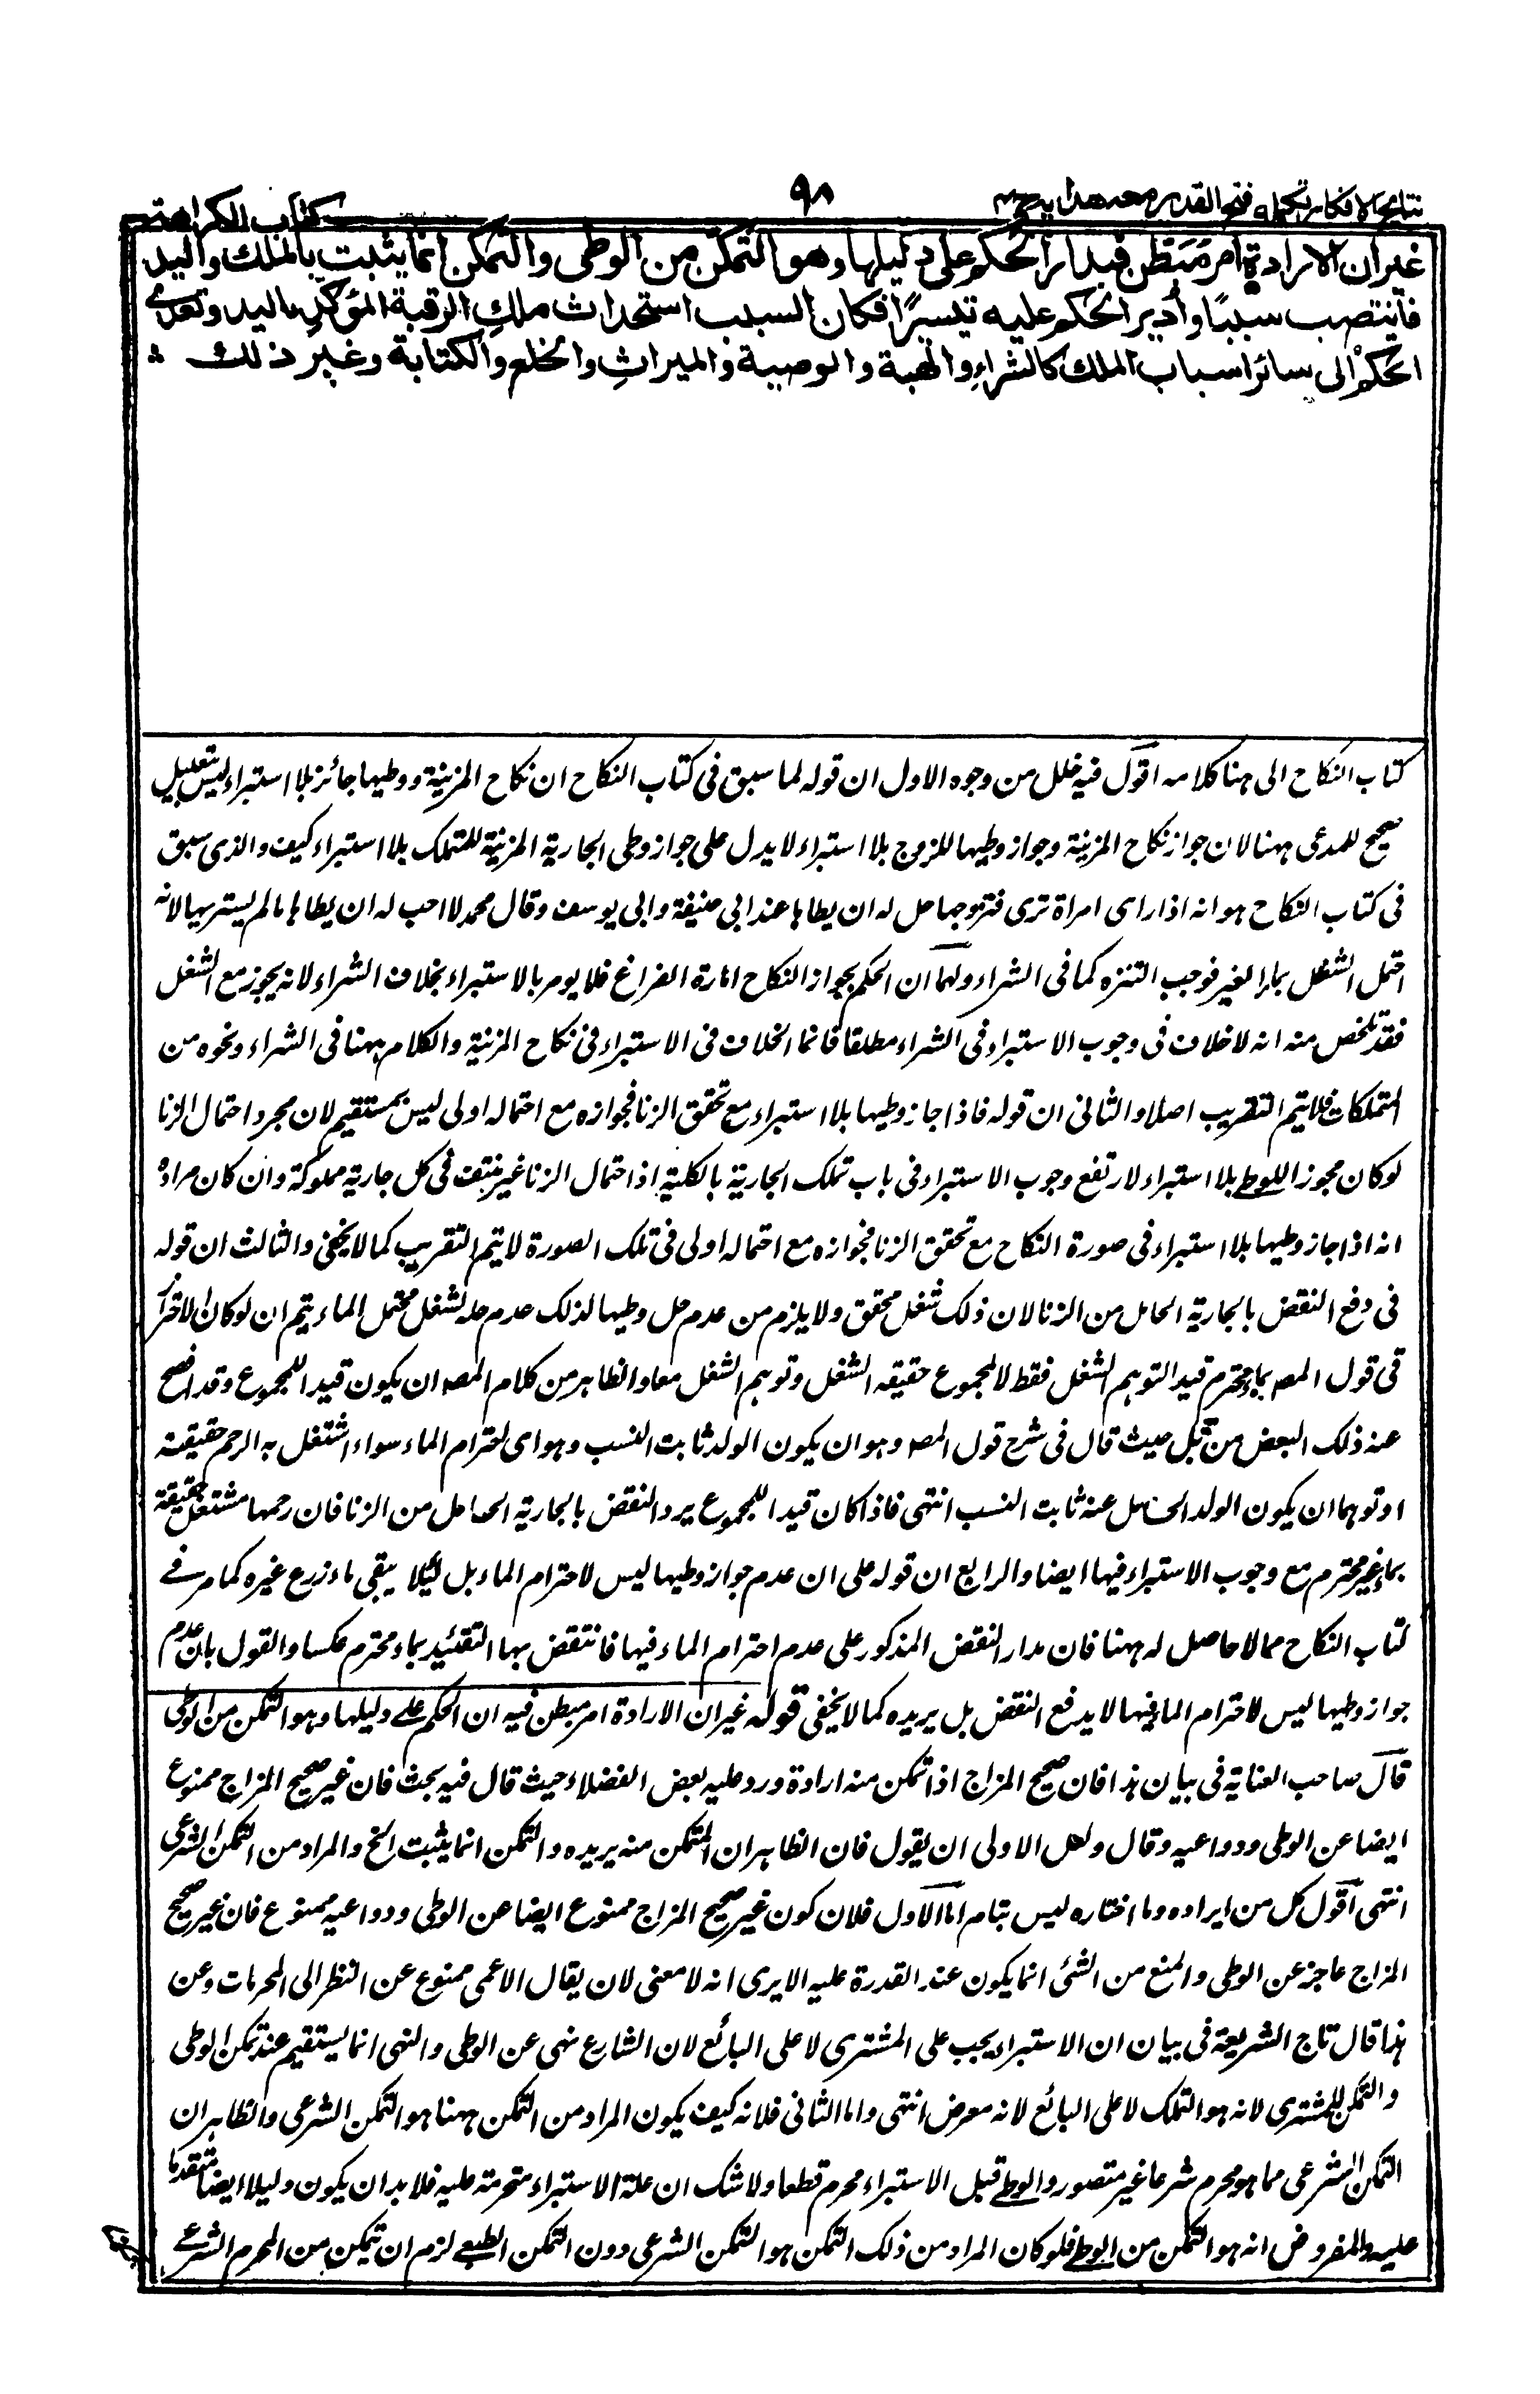 نتایج الافکار تکملہ فتح القدیر مع ھدایہ ج ۴
۹۸
کتاب الکراھتہ
غیران الارادۃ امر مبطن فیدار الحکم علی دلیلہا وھو التمکن من الوطی والتمکن انما یثبت بالملک والید
فانتصب سببًا وأدیر الحکم علیہ تیسیرًا فکان السبب استحداث ملکِ الرقبۃ المؤکدِ بالید وتعدی
الحکم الی سائر اسباب الملک کالشراءِ والھبۃ والوصیۃ والمیراثِ والخلع والکتابۃ وغیر ذلک
کتاب النکاح الی ہہنا کلامہ اقول فیہ خلل من وجوہ الاول ان قولہ لما سبق فی کتاب النکاح ان نکاح المزنیۃ ووطیہا جائز بلا استبراء لیس بتعلیل
صحیح للمدعی ہہنا لان جواز نکاح المزنیۃ وجواز وطیہا للزوج بلا استبراء لا یدل علی جواز وطی الجاریۃ المزنیۃ للمتملک بلا استبراء کیف والذی سبق
فی کتاب النکاح ہو انہ اذا رای امراۃ تزنی فتزوجہا حل لہ ان یطاہا عند ابی حنیفۃ وابی یوسف وقال محمد لا احب لہ ان یطاہا مالم یستبریہا لانہ
احتمل الشغل بماء الغیر فوجب التنزہ کما فی الشراء ولہما ان الحکم بجواز النکاح امارۃ الفراغ فلا یومر بالاستبراء بخلاف الشراء لانہ یجوز مع الشغل
فقد تلخص منہ انہ لا خلاف فی وجوب الاستبراء فی الشراء مطلقا فانما الخلاف فی الاستبراء فی نکاح المزنیۃ والکلام ہہنا فی الشراء ونحوہ من
التملکات فلا یتم التقریب اصلا والثانی ان قولہ فاذا جاز وطیہا بلا استبراء مع تحقق الزنا فجوازہ مع احتمالہ اولی لیس بمستقیم لان مجرد احتمال الزنا
لو کان مجوزا للوطے بلا استبراء لارتفع وجوب الاستبراء فی باب تملک الجاریۃ بالکلیۃ اذ احتمال الزنا غیر منتف فی کل جاریۃ مملوکۃ وان کان مرادہ
انہ اذا جاز وطیہا بلا استبراء فی صورۃ النکاح مع تحقق الزنا فجوازہ مع احتمالہ اولی فی تلک الصورۃ لا یتم التقریب کما لا یخفی والثالث ان قولہ
فی دفع النقض بالجاریۃ الحامل من الزنا لان ذلک شغل محقق ولا یلزم من عدم حل وطیہا لذلک عدم حلہ لشغل محتمل الماء یتم ان لو کان الاحترا
فی قول المصہ بماء محترم قید التوہم الشغل فقط لا لمجموع حقیقہ الشغل وتوہم الشغل معا والظاہر من کلام المصہ ان یکون قیدا للمجموع وقد افصح
عنہ ذلک البعض من قبل حیث قال فی شرح قول المصہ وہو ان یکون الولد ثابت النسب وہو ای احترام الماء سواء اشتغل بہ الرحم حقیقۃ
او توہما ان یکون الولد الحاصل عنہ ثابت النسب انتہی فاذا کان قیدا للمجموع یرد النقض بالجاریۃ الحامل من الزنا فان رحمہا مشتغل حقیقۃ
بماء غیر محترم مع وجوب الاستبراء فیہا ایضا والرابع ان قولہ علی ان عدم جواز وطیہا لیس لاحترام الماء بل لئلا یسقی ماءہ زرع غیرہ کما مر فے
کتاب النکاح مما لا حاصل لہ ہہنا فان مدار النقض المذکور علی عدم احترام الماء فیہا فانتقض بہا التقئید بماء محترم عکسا والقول بان عدم
جواز وطیہا لیس لاحترام الماء فیہا لا یدفع النقض بل یریدہ کما لا یخفی قولہ غیر ان الارادۃ امر مبطن فیہ ان الحکم علے دلیلہا وہو التمکن من الوطی
قال صاحب العنایۃ فی بیان ہذا فان صحیح المزاج اذا تمکن منہ ارادہ ورد علیہ بعض الفضلاء حیث قال فیہ بحث فان غیر صحیح المزاج ممنوع
ایضا عن الوطی ودواعیہ وقال ولعل الاولی ان یقول فان الظاہر ان المتمکن منہ یریدہ والتمکن انما یثبت الخ والمراد من التمکن الشرعی
انتہی اقول کل من ایرادہ وما اختارہ لیس بتام اما الاول فلان کون غیر صحیح المزاج ممنوع ایضا عن الوطی ودواعیہ ممنوع فان غیر صحیح
المزاج عاجز عن الوطی والمنع من الشئی انما یکون عند القدرۃ علیہ الا یری انہ لا معنی لان یقال الاعمی ممنوع عن النظر الی المحرمات وعن
ہذا قال تاج الشریعۃ فی بیان ان الاستبراء یجب علی المشتری لا علی البائع لان الشارع نہی عن الوطی والنہی انما یستقیم عند تمکن الوطی
والتمکن للمشتری لانہ ہو التملک لا علی البائع لانہ معرض انتہی واما الثانی فلانہ کیف یکون المراد من التمکن ہہنا ہو التمکن الشرعی والظاہر ان
التمکن الشرعی مما ہو محرم شرعا غیر متصور والوطے قبل الاستبراء محرم قطعا ولا شک ان علۃ الاستبراء متحرمۃ علیہ فلا بد ان یکون دلیلا ایضا متقدما
علیہ والمفروض انہ ہو التمکن من الوطے فلو کان المراد من ذلک التمکن ہو التمکن الشرعی دون التمکن الطبعے لزم ان تیمکن من المحرم الشرعے